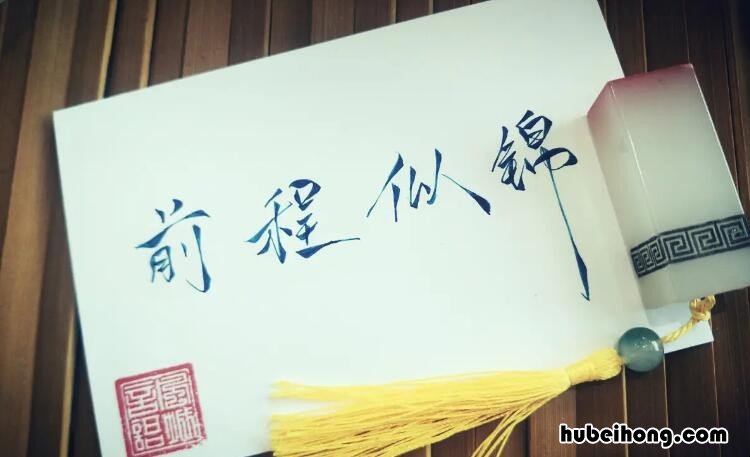 前程似锦
hubeihong.com